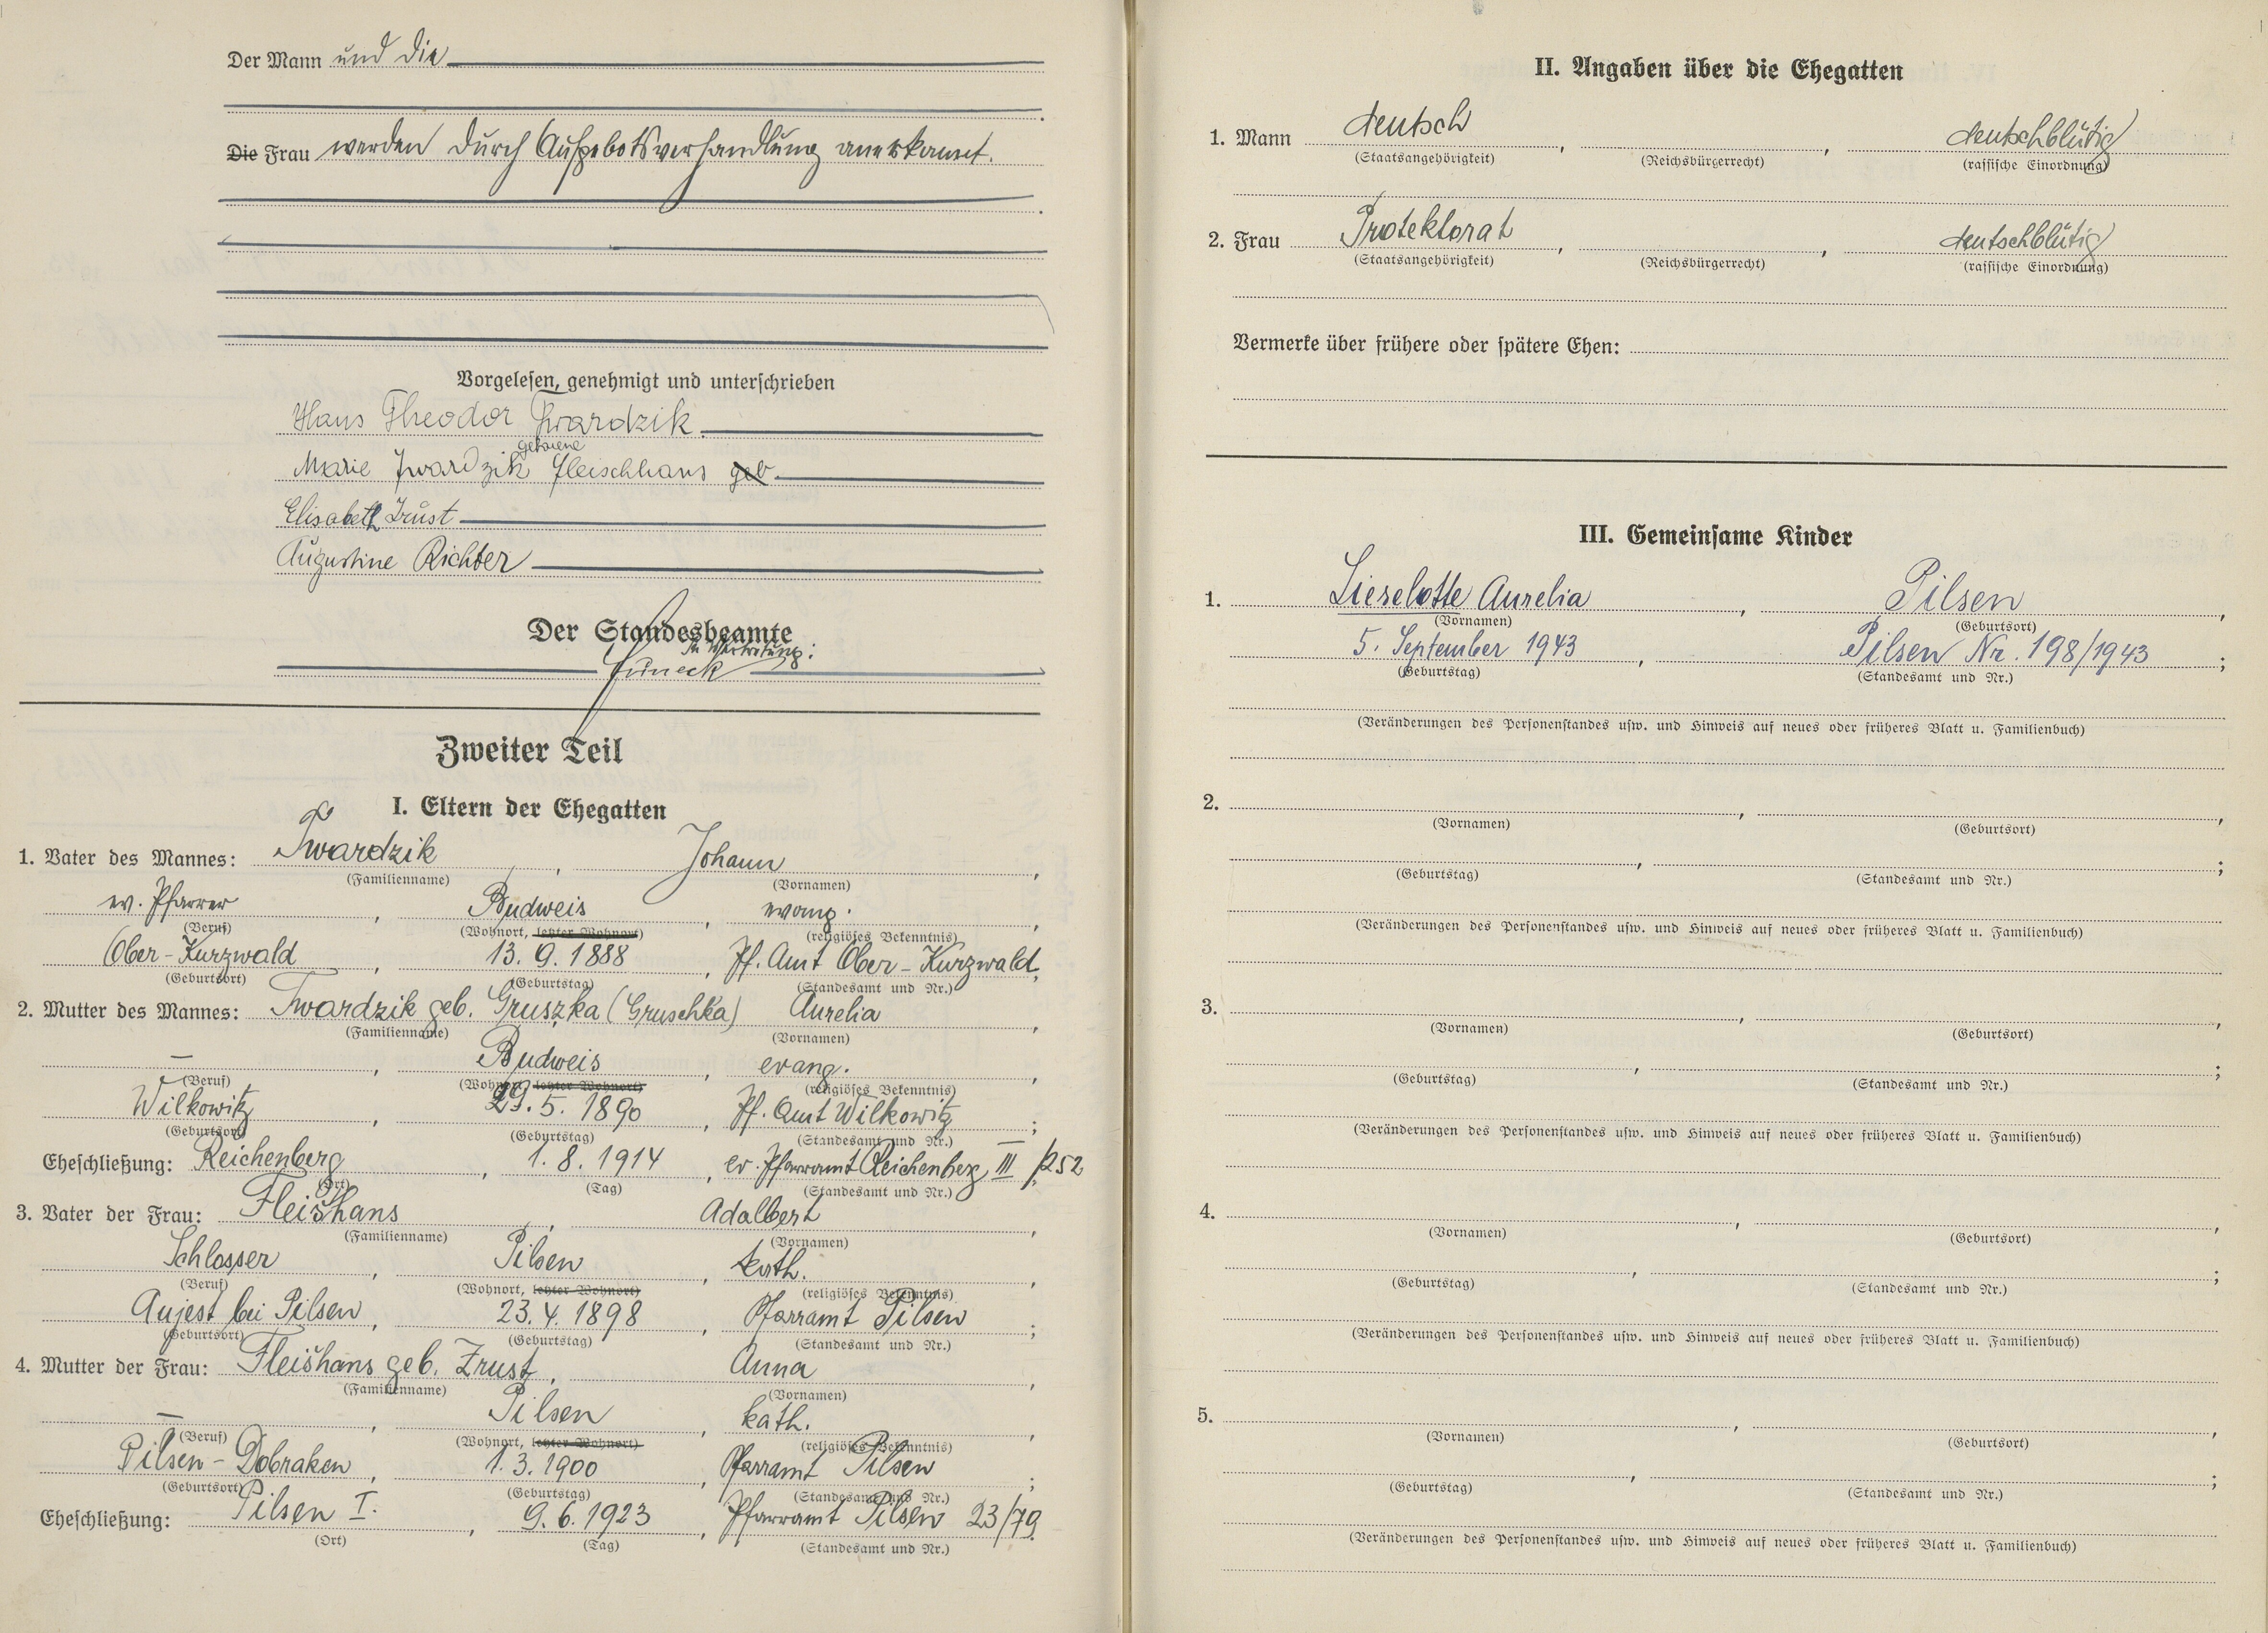 Der Mann und die
Die Frau werden durch Aufgebotsverhandlung anerkannt.
Vorgelesen, genehmigt und unterschrieben
Hans Theodor Twardzik
geborene
Marie Twardzik Fleischhans geb.
Elisabeth Zrust
Augustine Richter
Der Standesbeamte
In Vertretung:
Zweiter Teil
I. Eltern der Ehegatten
1. Vater des Mannes: Twardzik, Johann,
(Familienname) (Vornamen)
ev. Pfarrer, Budweis, evang.,
(Beruf) (Wohnort, letzter Wohnort) (religiöses Bekenntnis)
Ober-Kurzwald, 13. 9. 1888, Pf. Amt Ober-Kurzwald;
(Geburtsort) (Geburtstag) (Standesamt und Nr.)
2. Mutter des Mannes: Twardzik geb. Gruszka (Gruschka) Aurelia,
(Familienname) (Vornamen)
—, Budweis, evang.,
(Beruf) (Wohnort, letzter Wohnort) (religiöses Bekenntnis)
Wilkowitz, 29. 5. 1890, Pf. Amt Wilkowitz;
(Geburtsort) (Geburtstag) (Standesamt und Nr.)
Eheschließung: Reichenberg, 1. 8. 1914, ev. Pfarramt Reichenberg III /252
(Ort) (Tag) (Standesamt und Nr.)
3. Vater der Frau: Fleišhans, Adalbert,
(Familienname) (Vornamen)
Schlosser, Pilsen, kath.,
(Beruf) (Wohnort, letzter Wohnort) (religiöses Bekenntnis)
Aujest bei Pilsen, 23. 4. 1898, Pfarramt Pilsen;
(Geburtsort) (Geburtstag) (Standesamt und Nr.)
4. Mutter der Frau: Fleišhans geb. Zrust, Anna,
(Familienname) (Vornamen)
—, Pilsen, kath.,
(Beruf) (Wohnort, letzter Wohnort) (religiöses Bekenntnis)
Pilsen-Dobraken, 1. 3. 1900, Pfarramt Pilsen;
(Geburtsort) (Geburtstag) (Standesamt und Nr.)
Eheschließung: Pilsen I., 9. 6. 1923, Pfarramt Pilsen 23/79.
(Ort) (Tag) (Standesamt und Nr.)
II. Angaben über die Ehegatten
1. Mann deutsch, , deutschblütig
(Staatsangehörigkeit) (Reichsbürgerrecht) (rassische Einordnung)
2. Frau Protektorat, , deutschblütig
(Staatsangehörigkeit) (Reichsbürgerrecht) (rassische Einordnung)
Vermerke über frühere oder spätere Ehen:
III. Gemeinsame Kinder
1. Lieselotte Aurelia, Pilsen,
(Vornamen) (Geburtsort)
5. September 1943, Pilsen Nr. 198/1943;
(Geburtstag) (Standesamt und Nr.)
(Veränderungen des Personenstandes usw. und Hinweis auf neues oder früheres Blatt u. Familienbuch)
2. , ,
(Vornamen) (Geburtsort)
, ;
(Geburtstag) (Standesamt und Nr.)
(Veränderungen des Personenstandes usw. und Hinweis auf neues oder früheres Blatt u. Familienbuch)
3. , ,
(Vornamen) (Geburtsort)
, ;
(Geburtstag) (Standesamt und Nr.)
(Veränderungen des Personenstandes usw. und Hinweis auf neues oder früheres Blatt u. Familienbuch)
4. , ,
(Vornamen) (Geburtsort)
, ;
(Geburtstag) (Standesamt und Nr.)
(Veränderungen des Personenstandes usw. und Hinweis auf neues oder früheres Blatt u. Familienbuch)
5. , ,
(Vornamen) (Geburtsort)
, ;
(Geburtstag) (Standesamt und Nr.)
(Veränderungen des Personenstandes usw. und Hinweis auf neues oder früheres Blatt u. Familienbuch)